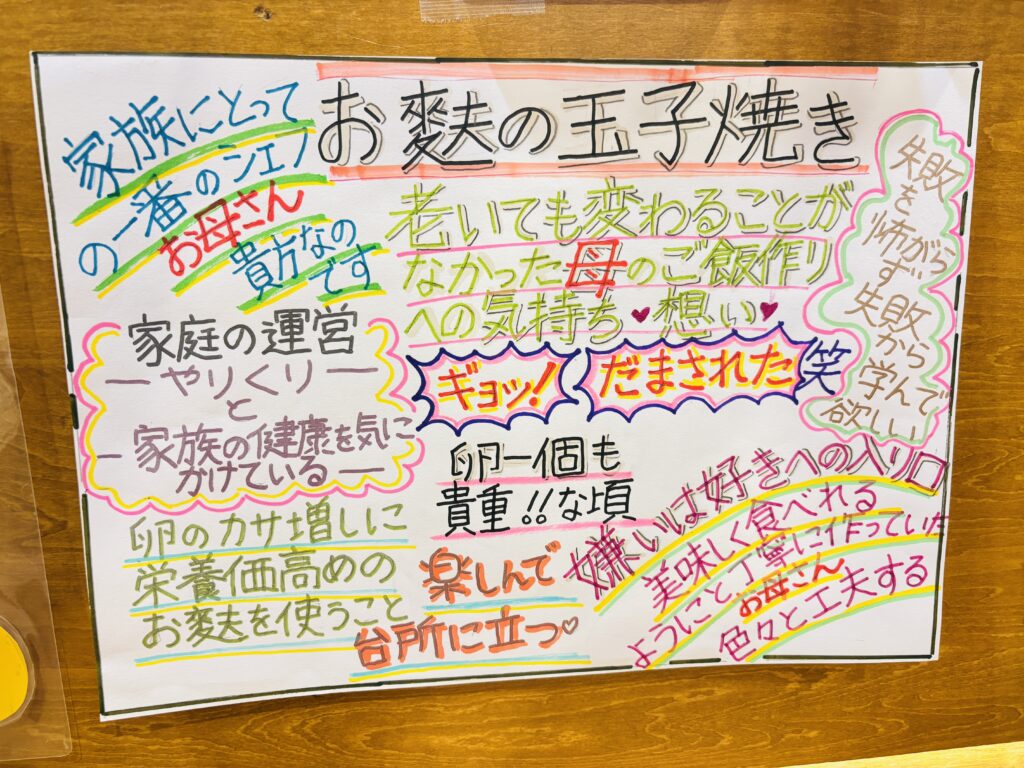 お麩の玉子焼き
家族にとって
の一番のシェフ
お母さん
貴方なの
です
老いても変わることが
なかった母のご飯作り
への気持ち♥想い♥
失敗
を
怖がら
ず
失敗
から
学んで
欲しい
家庭の運営
―やりくり―
と
―家族の健康を気に
かけている―
ギョッ!
だまされた
笑
卵一個も
貴重!!な頃
卵のカサ増しに
栄養価高めの
お麩を使うこと
楽しんで
台所に立つ♡
嫌いは好きへの入り口
美味しく食べれる
ようにと丁寧に作っていた
お母さん
色々と工夫する